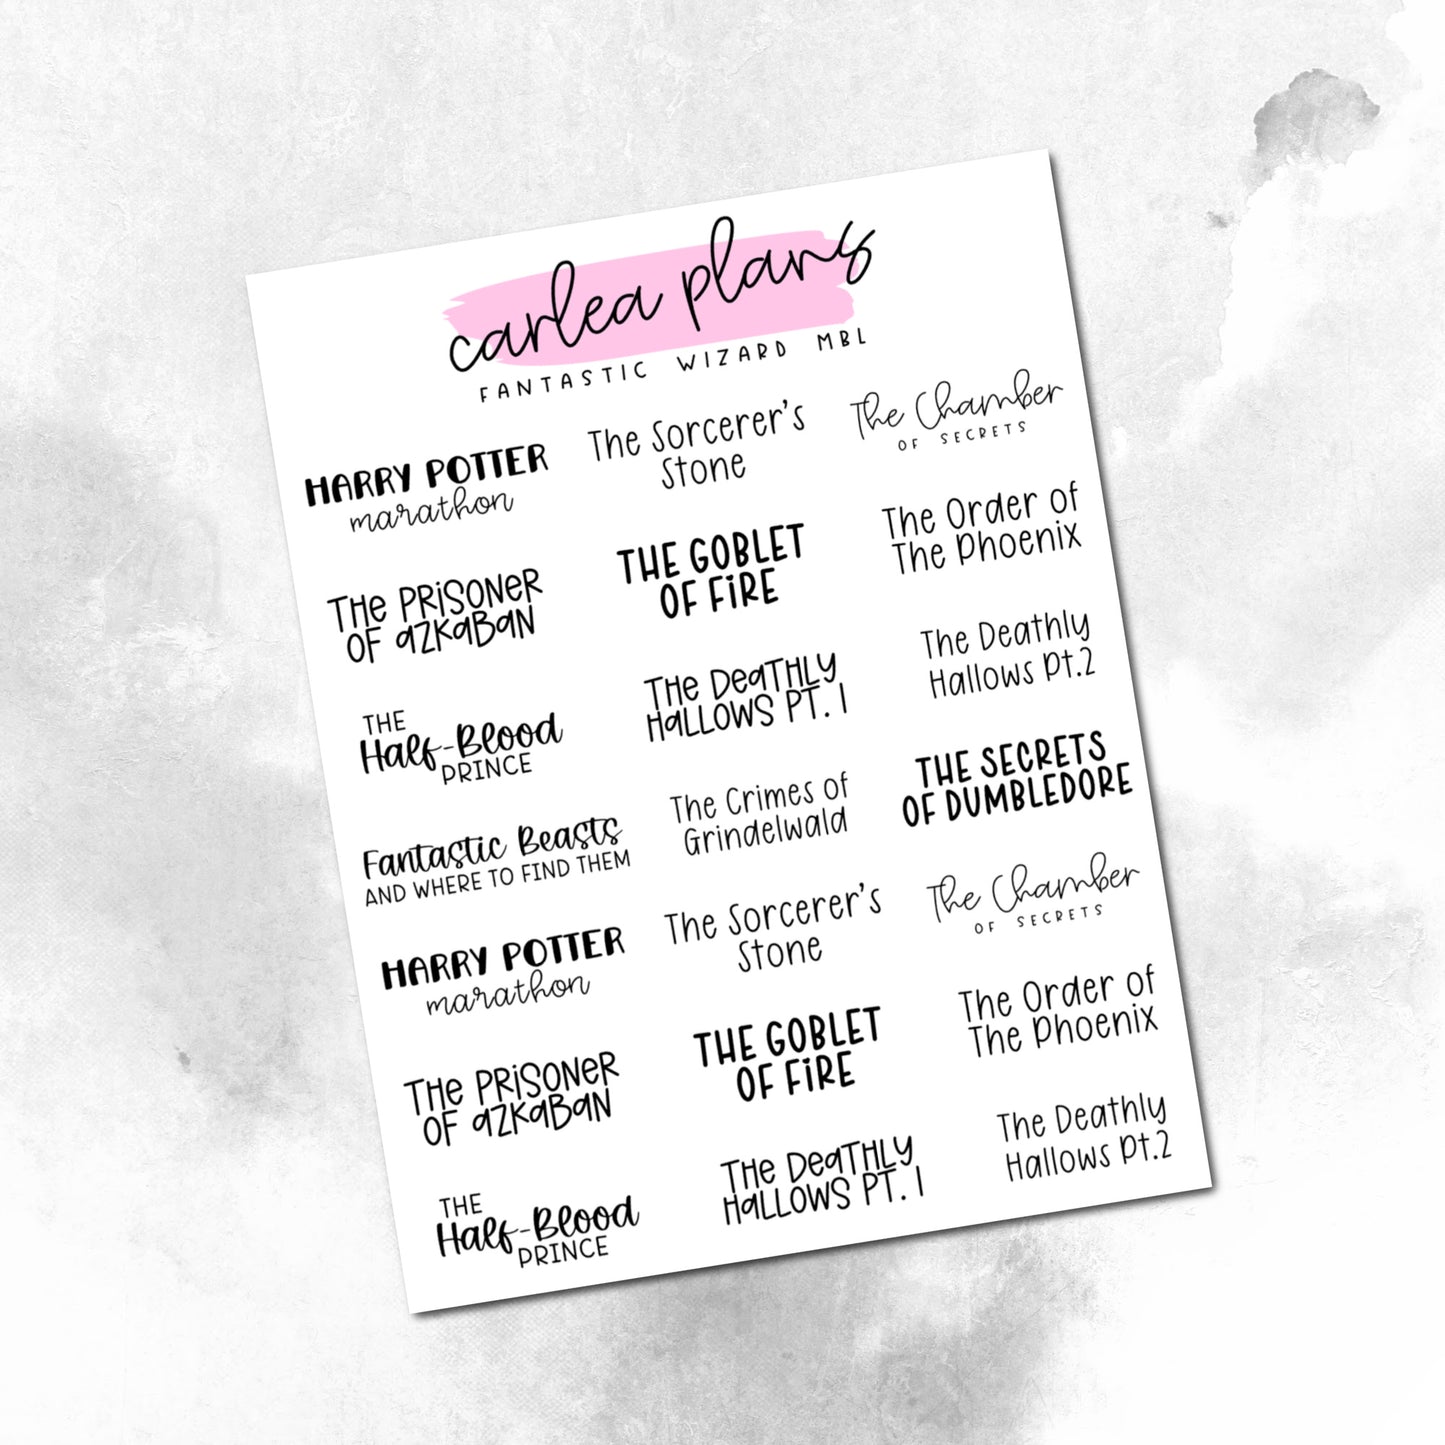 carlea plans
FANTASTIC WIZARD MBL
HARRY POTTER
marathon
The Sorcerer's
Stone
The Chamber
OF SECRETS
THE PRISONER
OF AZKABAN
THE GOBLET
OF FIRE
The Order of
The Phoenix
THE
Half-Blood
PRINCE
THE DEATHLY
HALLOWS PT. 1
The Deathly
Hallows Pt.2
Fantastic Beasts
AND WHERE TO FIND THEM
The Crimes of
Grindelwald
THE SECRETS
OF DUMBLEDORE
HARRY POTTER
marathon
The Sorcerer's
Stone
The Chamber
OF SECRETS
THE PRISONER
OF AZKABAN
THE GOBLET
OF FIRE
The Order of
The Phoenix
THE
Half-Blood
PRINCE
THE DEATHLY
HALLOWS PT. 1
The Deathly
Hallows Pt.2